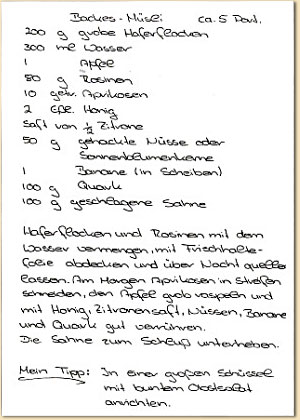 Backes-Müsli ca. 5 Port.
200 g grobe Haferflocken
300 ml Wasser
1 Apfel
80 g Rosinen
10 getr. Aprikosen
2 Eßl. Honig
Saft von ½ Zitrone
50 g gehackte Nüsse oder
Sonnenblumenkerne
1 Banane (in Scheiben)
100 g Quark
100 g geschlagene Sahne
Haferflocken und Rosinen mit dem
Wasser vermengen, mit Frischhalte-
folie abdecken und über Nacht quellen
lassen. Am Morgen Aprikosen in Streifen
schneiden, den Apfel grob raspeln und
mit Honig, Zitronensaft, Nüssen, Banane
und Quark gut verrühren.
Die Sahne zum Schluß unterheben.
Mein Tipp: In einer großen Schüssel
mit buntem Obstsalat
anrichten.